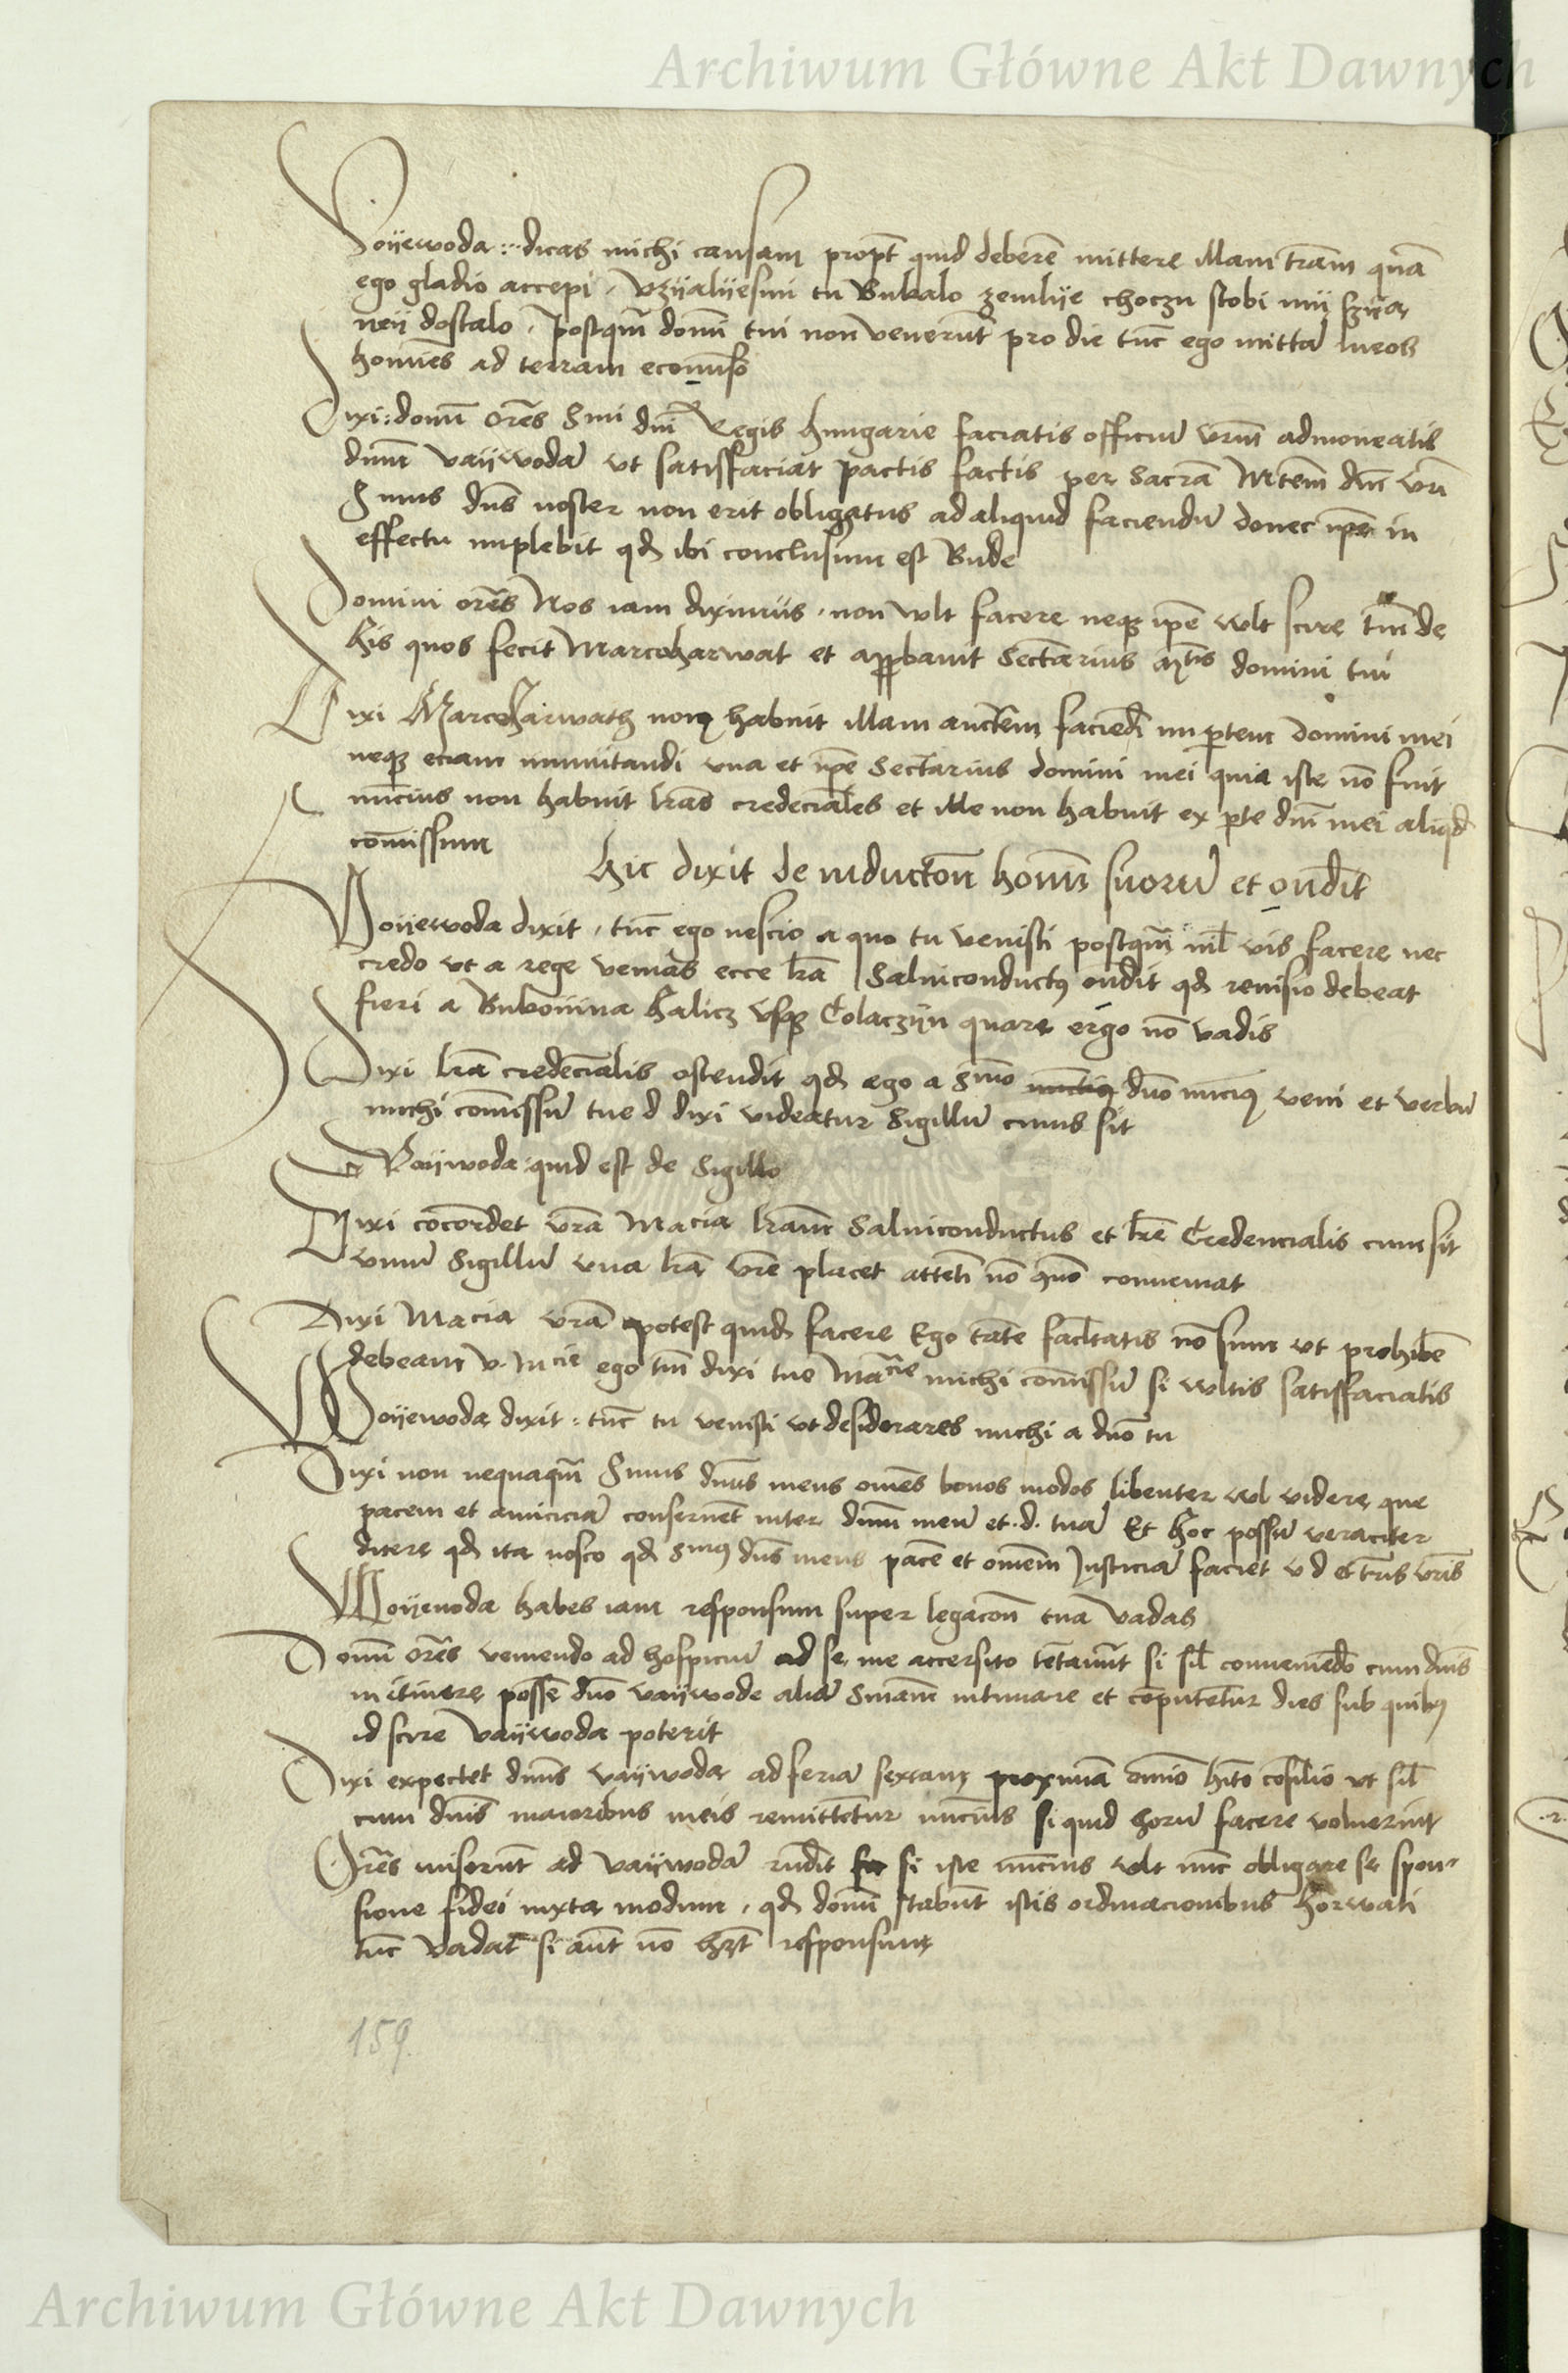 Archiwum Główne Akt Dawnych
Voÿewoda :··· dicas michi causam propt quid deberē mittere illam trām quā
ego gladio accepi , Vzÿalÿesmi tu Bukalo zemlÿe choczu stobi mÿ
neÿ dostalo , postquā domī tui non venerūt pro die tūc ego mittā meos
homīes ad terram
Dixi : domī orēs Smi dnī Regis hungarie faciatis officiū vrūm admoneatis
dnūm vaÿwodā vt satisfaciat pactis factis per sacrā Mtēm dnī vrī
Smus dns noster non erit obligatus ad aliquid faciendū donec ipse in
effectu implebit qd ibi conclusum est Bude
Domini orēs Nos iam diximus , non wlt facere neqz ipē wlt scire tm̄ de
his quos fecit Marcoharwat et appbauit Sectarius mtis domini tui
Dixi Marcoharwath non habuit illam auctem faciēdi in ptem domini mei
neqz eciam immitandi vna et ipē Sectarius domini mei quia iste nō fuit
nūcius non habuit lrās credēciales et ille non habuit ex pte dni mei aliqd
cōmissum
hic dixit de inductōn homī suorū et ondit
Voÿewoda dixit , tūc ego nescio a quo tu venisti postquā nil vis facere nec
credo vt a rege venias ecce lrā Saluiconductus ondit qd reuisio debeat
fieri a Bukowina halicz vsqz Colaczÿn quare ergo nō vadis
Dixi lrā credēcialis ostendit qd ego a Smo dnō nūcius veni et verbū
michi cōmissū tue d dixi videatur Sigillū cuius sit
Vaÿwoda : quid est de Sigillo
Dixi cōcordet vrā Macia lrām Saluiconductus et lrē Credencialis cum sit
vnum Sigillū vna lrā vrē placet attētī nō quō conueniat
Dixi Macia vrā potest quid facere Ego tāte facltatis nō sum vt prohibē
debeam v. Mcie ego tm̄ dixi tue Macie michi cōmissū si wltis satisfaciatis
Voÿewoda dixit : tūc tu venisti vt desiderares michi a dnō tu
Dixi non nequaqm̄ Smus dnūs meus omēs bonos modos libenter wl videre que
pacem et amiciciā conseruēt inter dnūm meū et .d. tuā Et hoc possū veraciter
dicere qd ita nosco qd Smus dns meus pacē et omēm Justiciā faciet v d et trīs vrīs
Woÿewoda habes iam responsum super legacōn tua vadas
Domī orēs veniendo ad hospiciū ad se me accersito tētauerūt si sil conueniēdo cum dnīs
in itinere possē dnō vaÿwode aliā Snīam intimare et cōputētur dies sub quibus
id scire Vaÿwoda poterit
Dixi expectet dnūs vaÿwoda ad feriā sextam proximā omnō hīto cōsilio vt sil
cum dnīs maioribus meis remittētur nūcius si quid horū facere voluerint
Orēs miserūt ad vaÿwodā rndit si iste nūcius wlt nūc obligare se spon-
sione fidei iuxta modum , qd domī stabūt istis ordinacionibus horwati
tūc vadat si aūt nō hzt responsum
159
Archiwum Główne Akt Dawnych